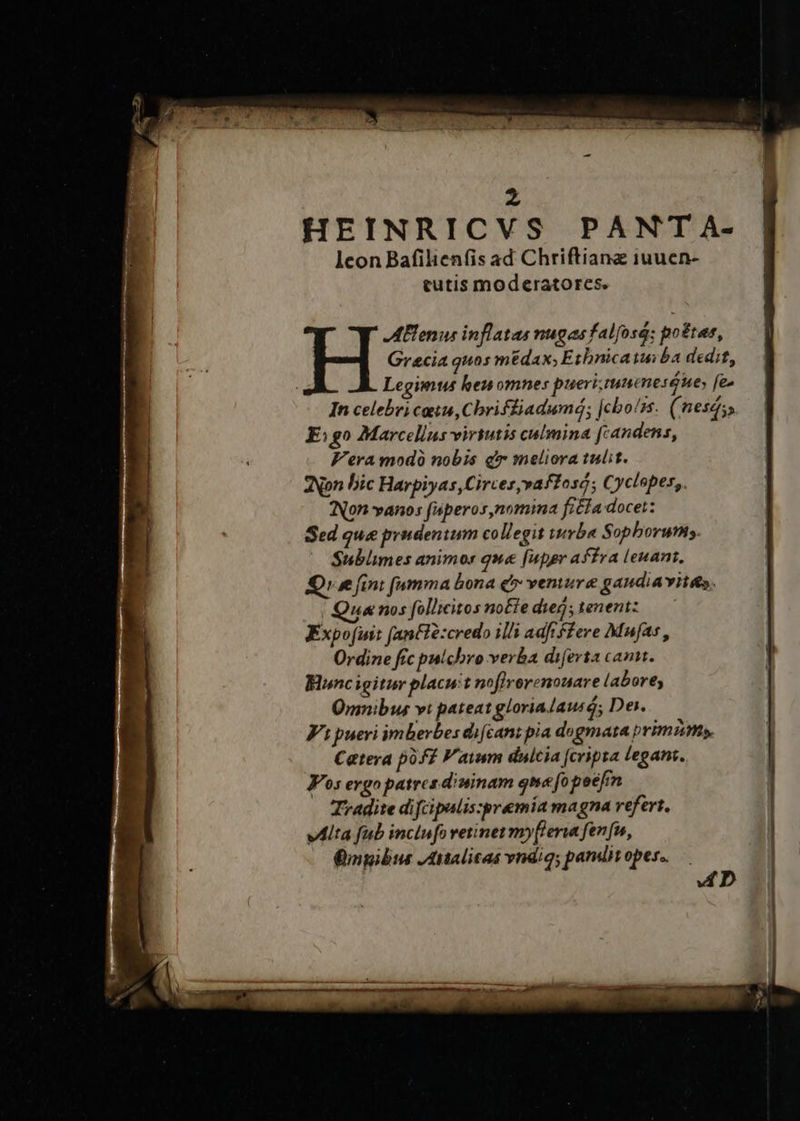 2
HEINRICVS PANTA-
leon Baſilienſis ad Chriſtianæ iuuen-
tutis moderatores.
HActenus inflatas nugas falſosq́; poëtas,
Græcia quos mēdax, Ethnica turba dedit,
Legimus heu omnes pueri, iuuenesq́ue, ſe-
In celebri cœtu, Chriſtiadumq́; ſcholis. (nesq́;,
Ergo Marcellus virtutis culmina ſcandens,
Vera modò nobis & meliora tulit.
Non hic Harpiyas, Circes, vaſtosq́; Cyclopes,
Non vanos ſuperos, nomina ficta docet:
Sed quæ prudentum collegit turba Sophorum,
Sublimes animos quæ ſuper aſtra leuant.
Quæ ſint ſumma bona & venturæ gaudia vitæ,
Quæ nos ſollicitos nocte dieq́; tenent:
Expoſuit ſanctè: credo illi adſiſtere Muſas,
Ordine ſic pulchro verba diſerta canit.
Hunc igitur placuit noſtro renouare labore,
Omnibus vt pateat gloria lausq́; Dei.
Vt pueri imberbes diſcant pia dogmata primùm,
Cætera pòſt Vatum dulcia ſcripta legant.
Vos ergo patres diuinam quæſo poëſin
Tradite diſcipulis: præmia magna refert.
Alta ſub incluſo retinet myſteria ſenſu,
Omnibus Attalicas vndiq; pandit opes.
AD